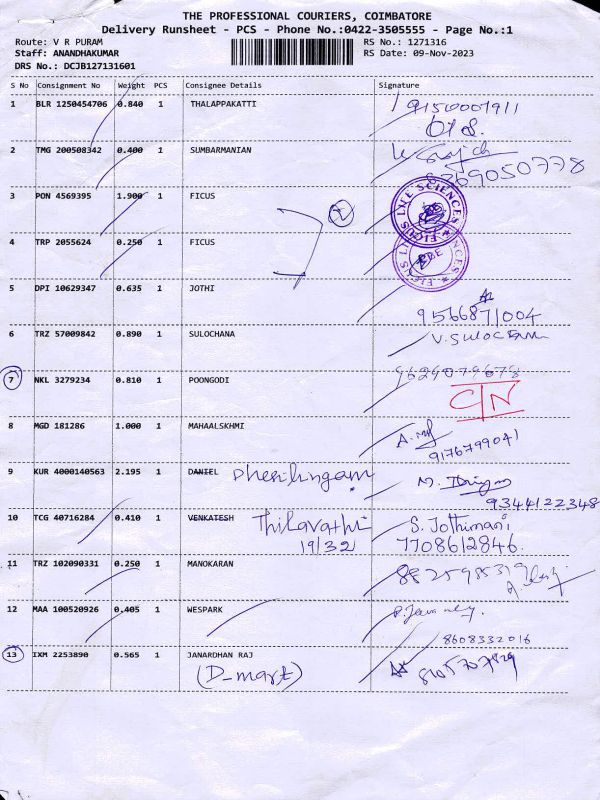 THE PROFESSIONAL COURIERS, COIMBATORE
Delivery Runsheet - PCS - Phone No.:0422-3505555 - Page No.:1
Route: V R PURAM RS No.: 1271316
Staff: ANANDHAKUMAR RS Date: 09-Nov-2023
DRS No.: DCJB127131601
S No Consignment No Weight PCS Consignee Details Signature
1 BLR 1250454706 0.840 1 THALAPPAKATTI
2 TMG 200508342 0.400 1 SUMBARMANIAN
3 PON 4569395 1.900 1 FICUS
FICUS LIFE SCIENCES
4 TRP 2055624 0.250 1 FICUS
5 DPI 10629347 0.635 1 JOTHI
9566871004
6 TRZ 57009842 0.890 1 SULOCHANA V. SULOCHANA
7 NKL 3279234 0.810 1 POONGODI 9629079678
C/N
8 MGD 181286 1.000 1 MAHAALSKHMI
9176799041
9 KUR 4000140563 2.195 1 DANIEL
9344122348
10 TCG 40716284 0.410 1 VENKATESH Thilavathi S. Jothimani
19/32 7708612846.
11 TRZ 102090331 0.250 1 MANOKARAN
12 MAA 100520926 0.405 1 WESPARK
8608332016
13 IXM 2253890 0.565 1 JANARDHAN RAJ
(D-mart)